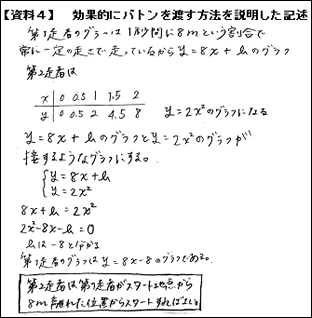 【資料４】　効果的にバトンを渡す方法を説明した記述
第1走者のグラフは1秒間に8mという割合で
常に一定の速さで走っているからy=8x+bのグラフ
第2走者は
x 0 0.5 1 1.5 2
y 0 0.5 2 4.5 8　y=2x²のグラフになる
y=8x+bのグラフとy=2x²のグラフが
接するようなグラフにする。
y=8x+b
y=2x²
8x+b=2x²
2x²-8x-b=0
bは-8と分かる
第1走者のグラフはy=8x-8のグラフである。
第2走者は第1走者がスタート地点から
8m離れた位置からスタートすればよい。